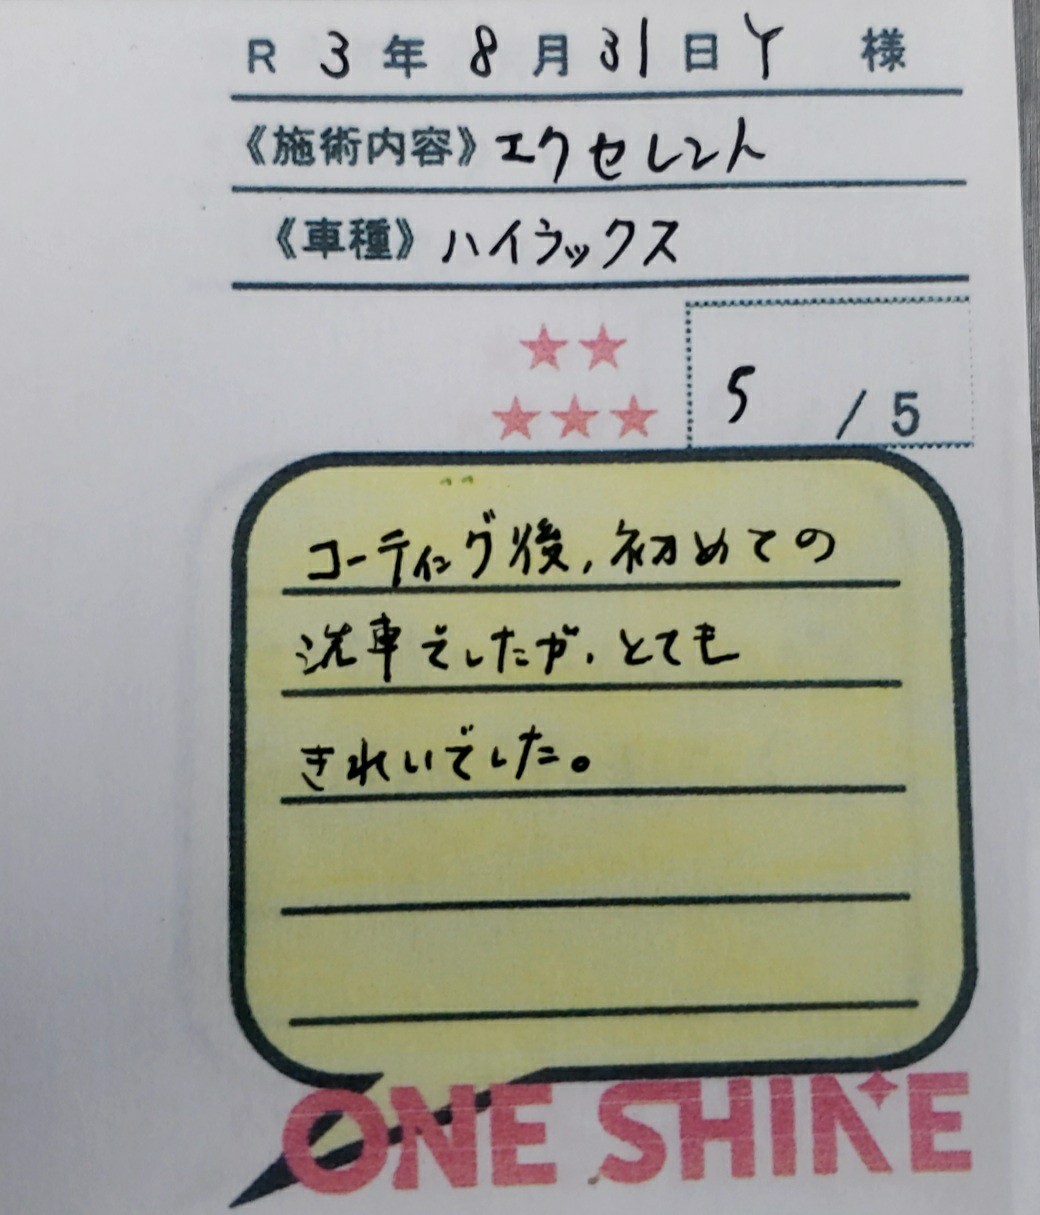 R 3年 8月 31日 Y 様
《施術内容》エクセレント
《車種》ハイラックス
5 / 5
コーティング後、初めての
洗車をしたが、とても
きれいでした。
ONE SHINE